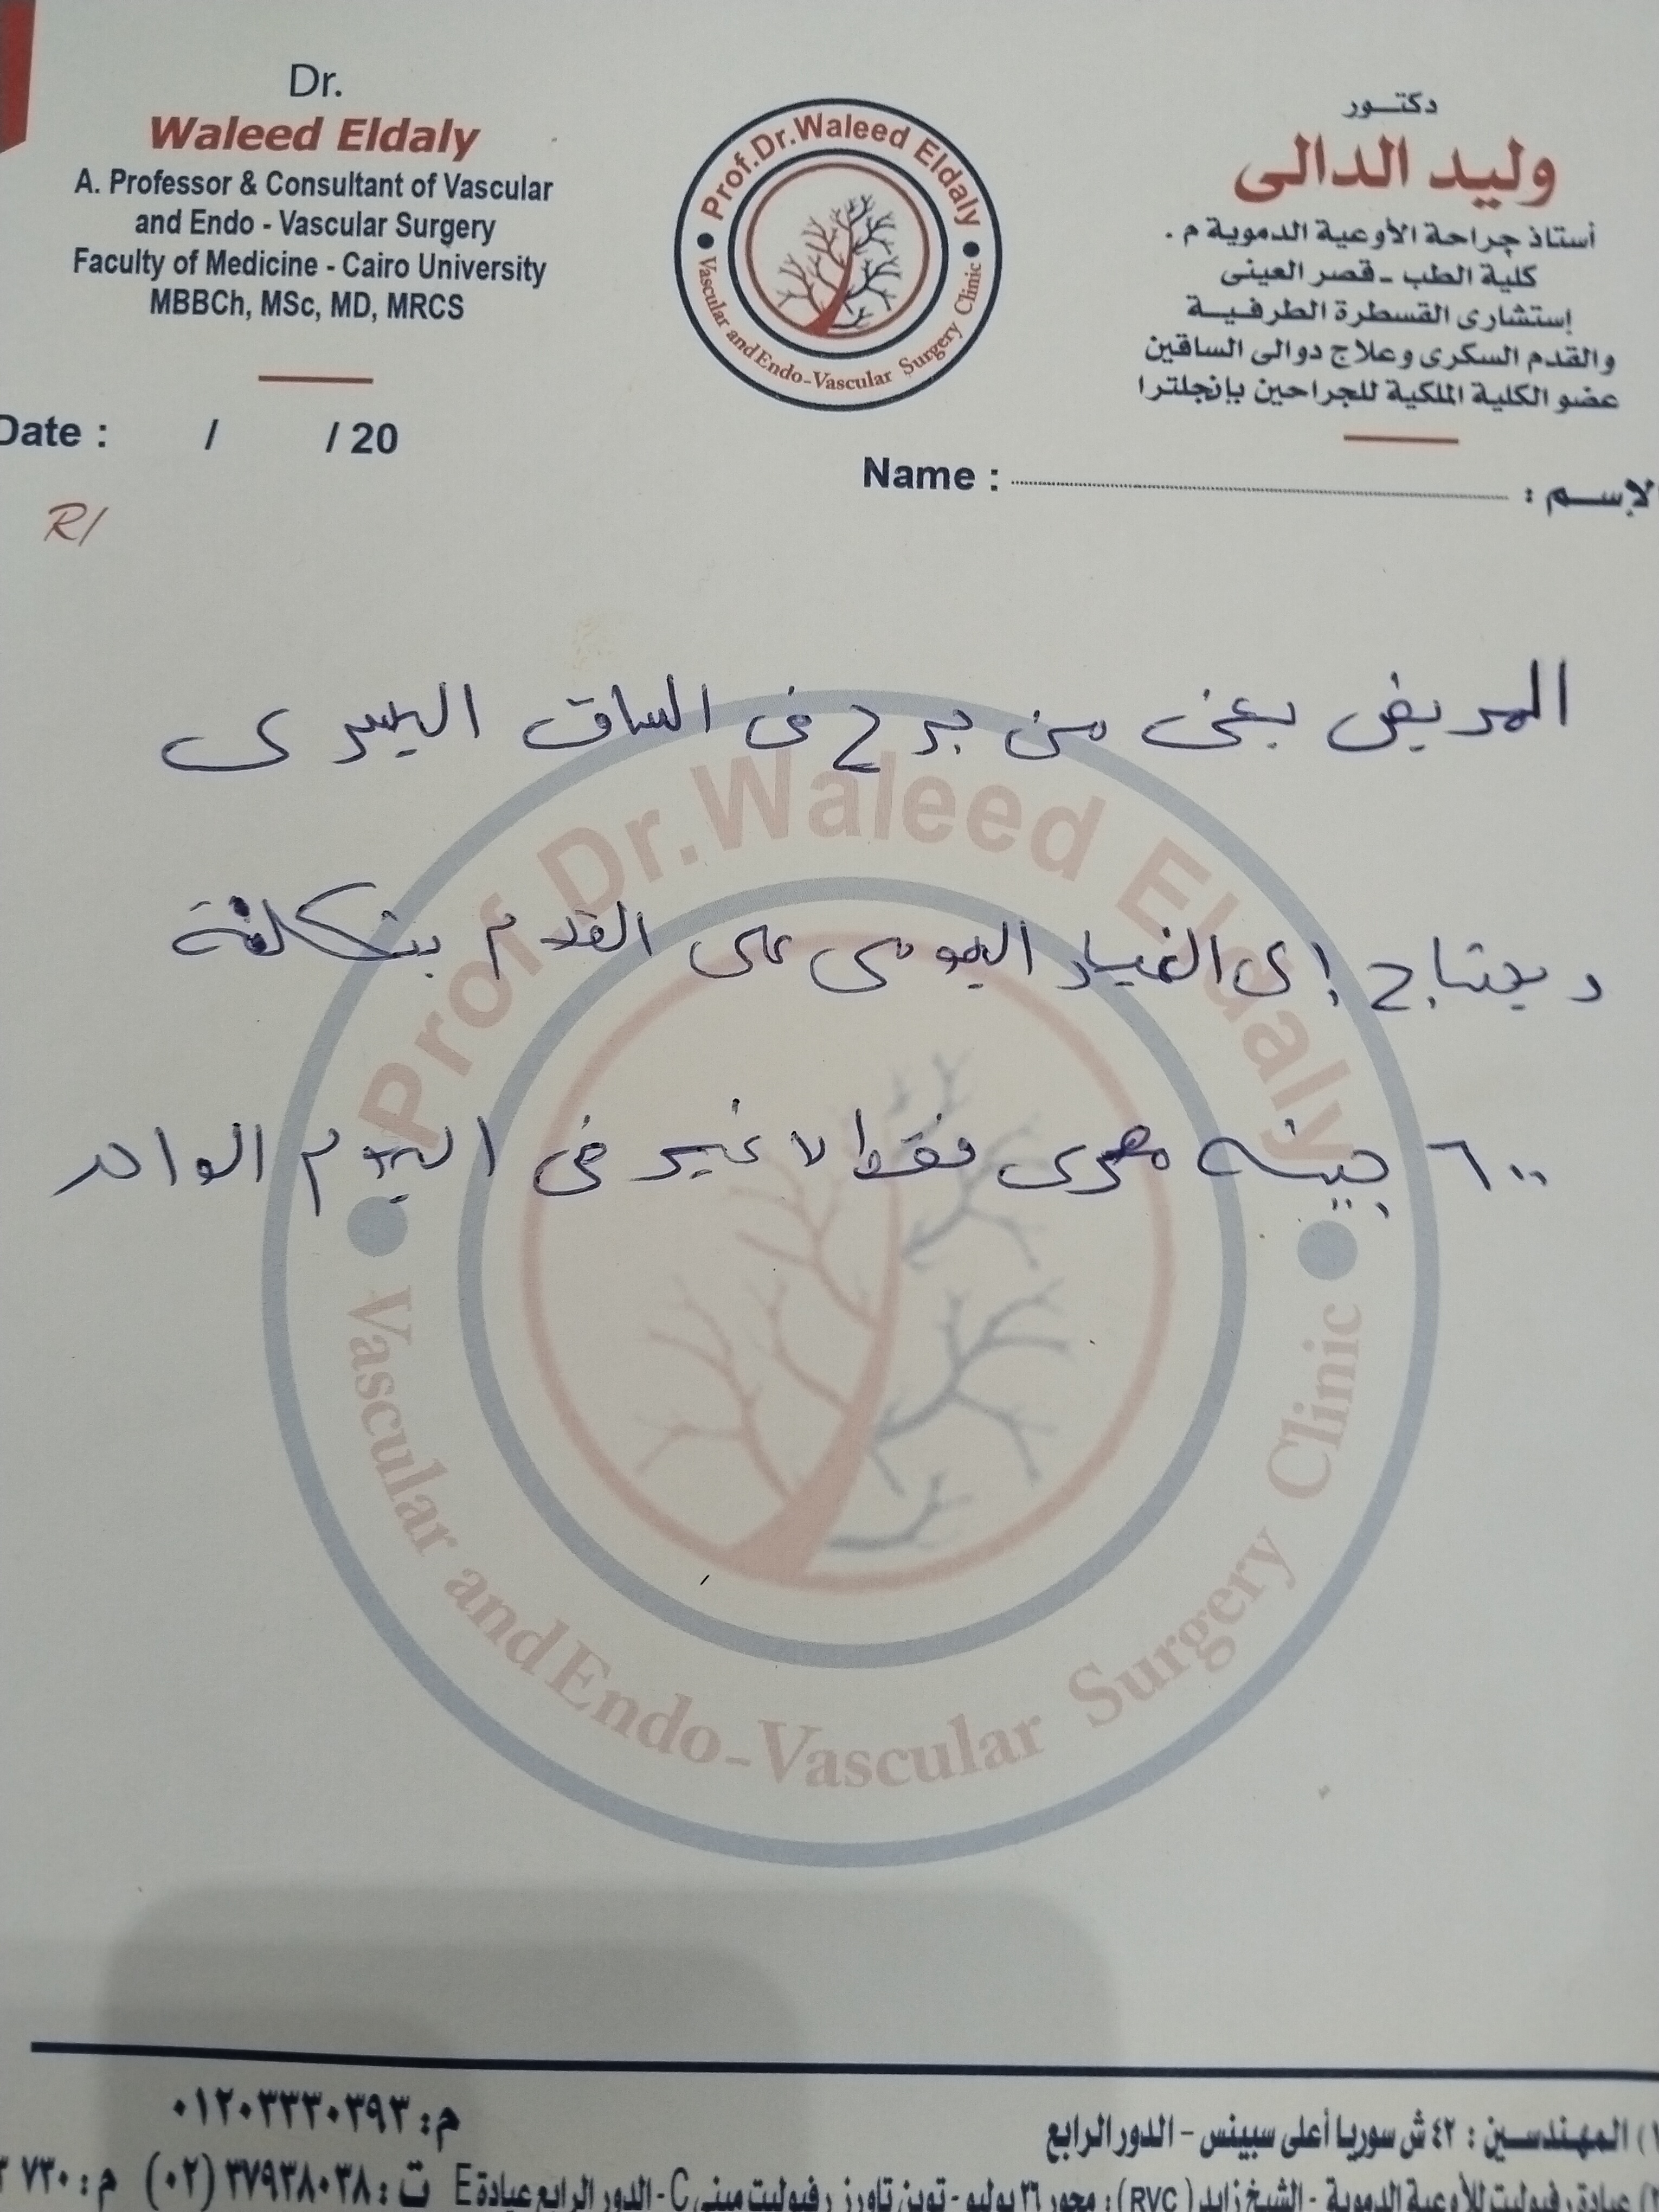 Dr.
Waleed Eldaly
A. Professor & Consultant of Vascular
and Endo - Vascular Surgery
Faculty of Medicine - Cairo University
MBBCh, MSc, MD, MRCS
Prof.Dr.Waleed Eldaly
Vascular and Endo-Vascular Surgery Clinic
دكتور
وليد الدالى
أستاذ جراحة الأوعية الدموية م .
كلية الطب - قصر العينى
إستشارى القسطرة الطرفية
والقدم السكرى وعلاج دوالى الساقين
عضو الكلية الملكية للجراحين بإنجلترا
Date : / / 20
Name : الإسم :
R/
المريض يعنى من جرح فى الساق اليسرى
و يحتاج إلى الغيار اليومى على القدم بتكلفة
٦٠٠ جينه مصرى فقط لا غير فى اليوم الواحد
Prof.Dr.Waleed Eldaly
Vascular and Endo-Vascular Surgery Clinic
١) المهندسين : ٤٢ ش سوريا أعلى سبينس - الدور الرابع م : ٠١٢٠٣٣٣٠٣٩٣
عيادة رفيوليت للأوعية الدموية - الشيخ زايد ( RVC ) : محور ٢٦ يوليو - توين تاورز رفيوليت مبنى C - الدور الرابع عيادة E ت : ٣٧٩٣٨٠٣٨ (٠٢) م : ٧٣٠